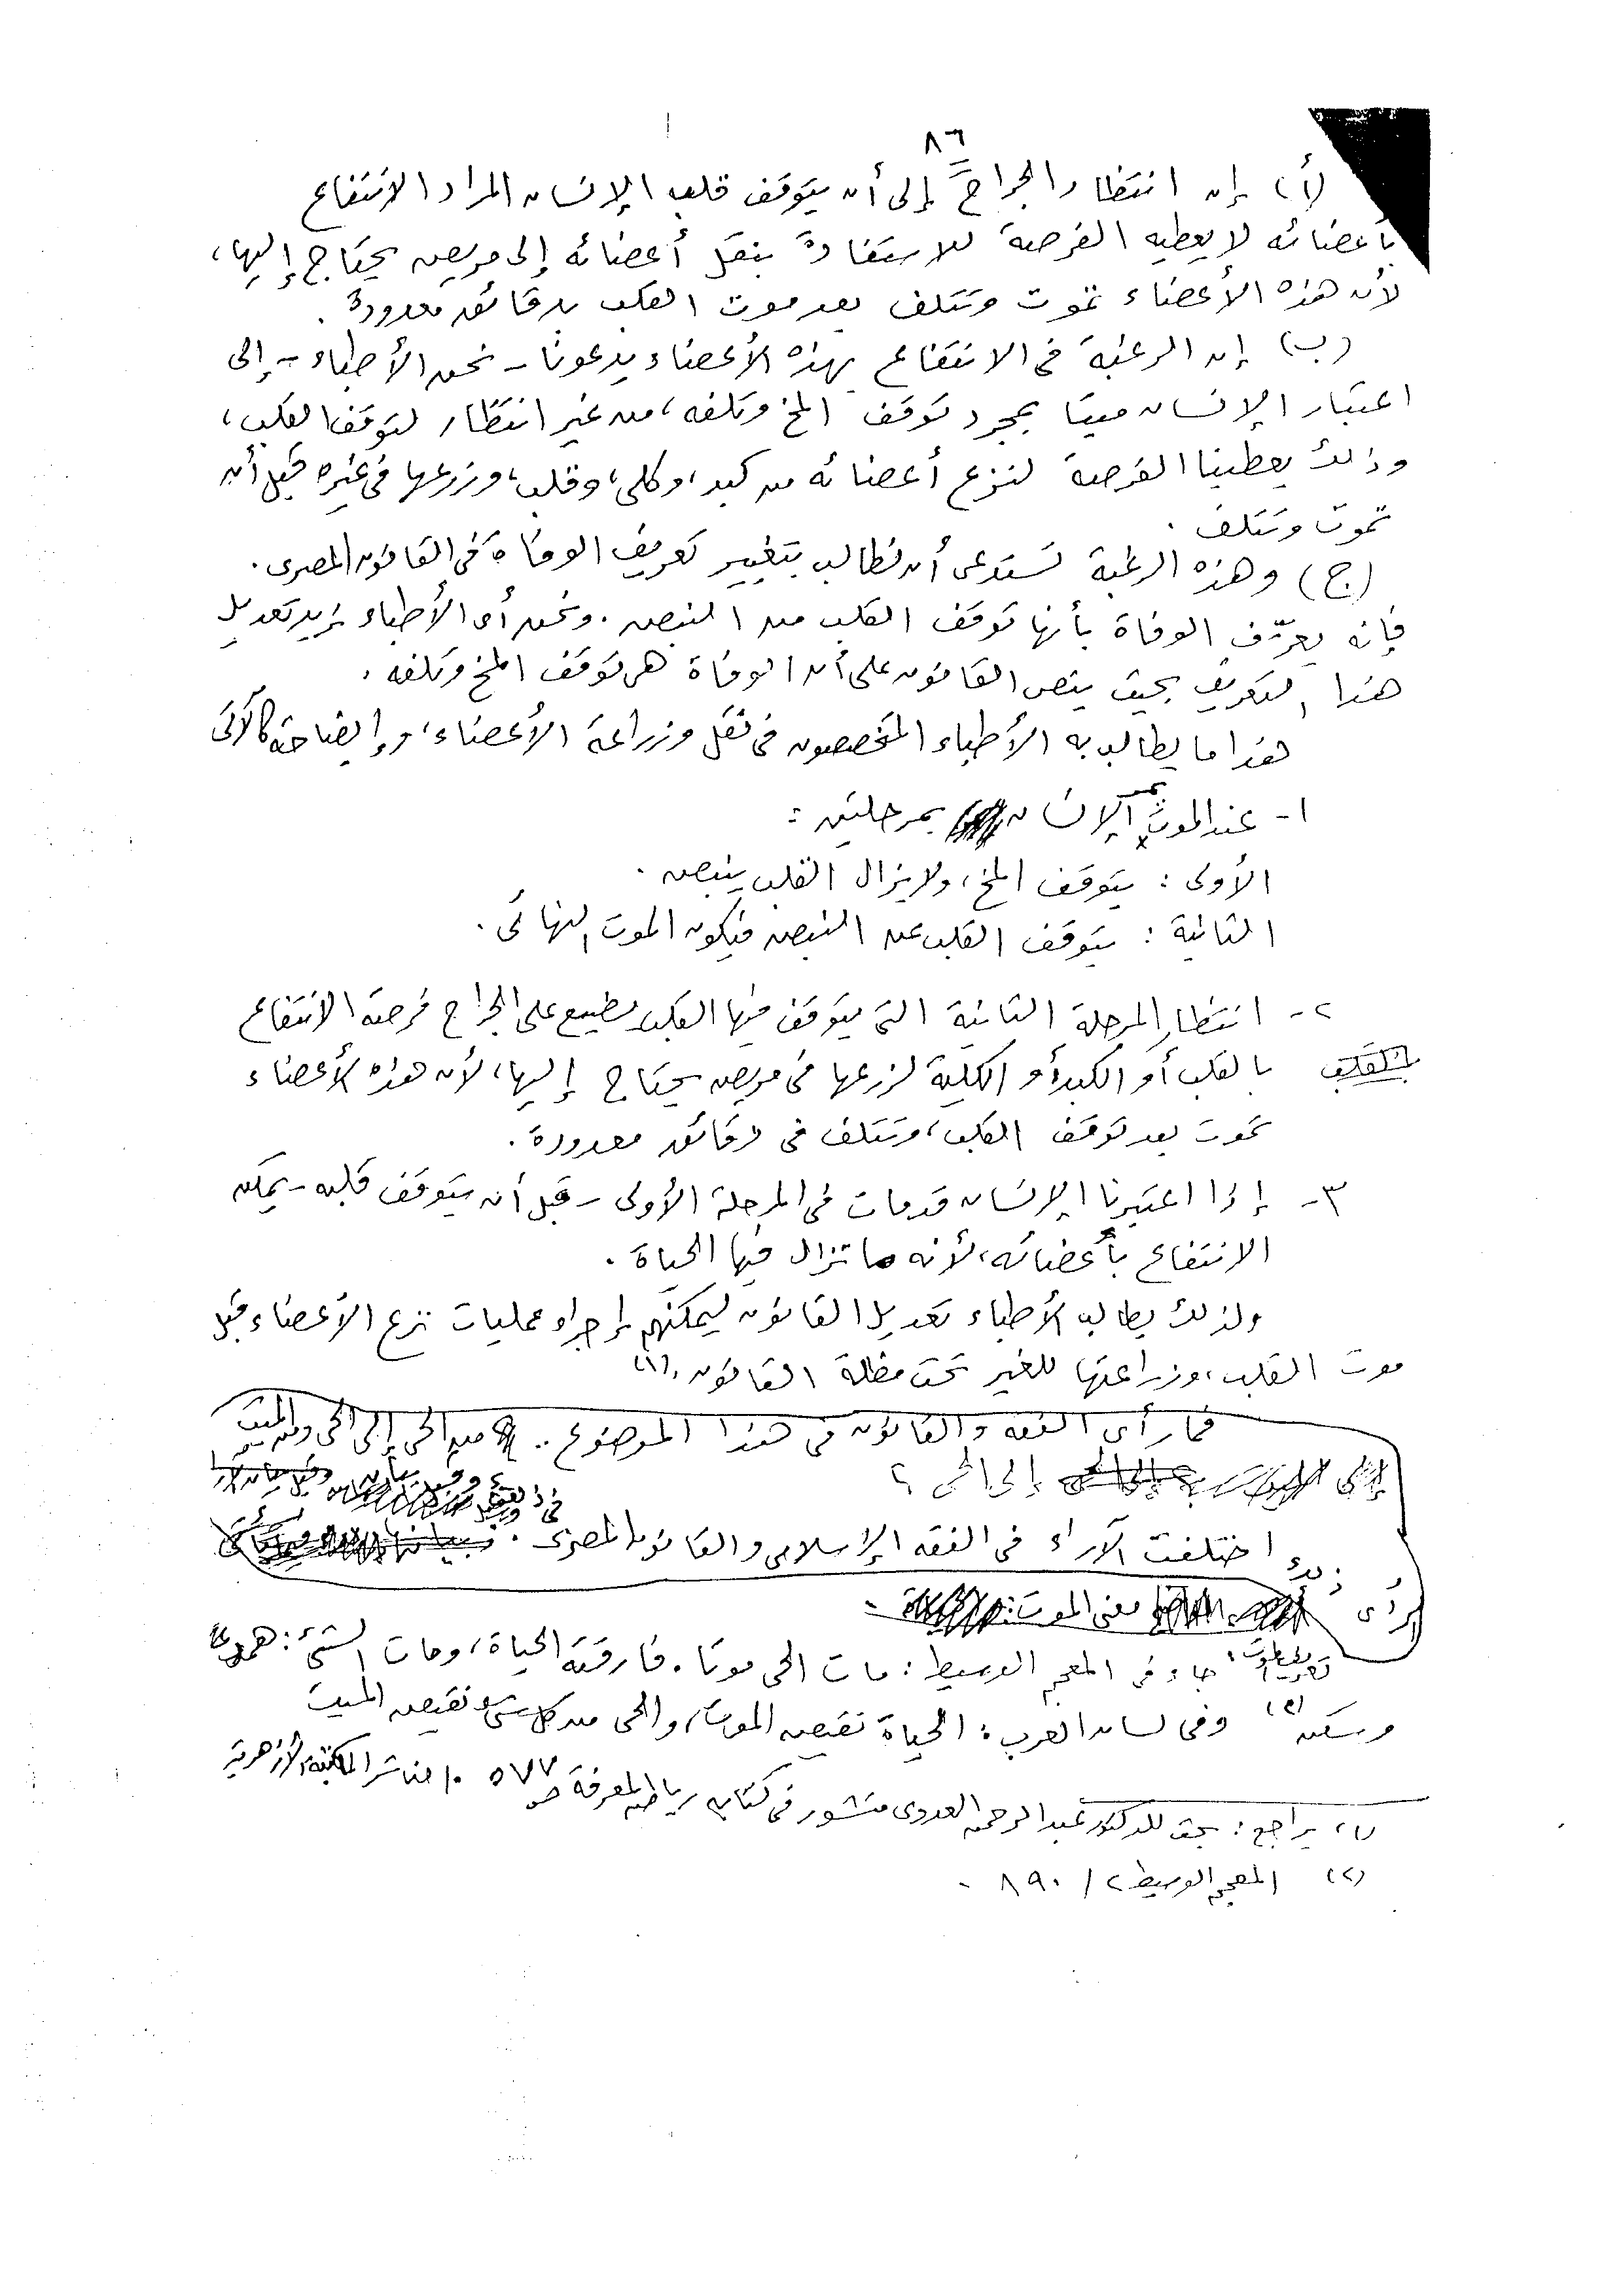 ٨٦
(أ) إن انتظار الجراح إلى أن يتوقف قلب الإنسان المراد الانتفاع
بأعضائه لا يعطيه الفرصة للاستفادة بنقل أعضائه إلى مريض يحتاج إليها،
لأن هذه الأعضاء تموت وتتلف بعد موت القلب بدقائق معدودة.
(ب) إن الرغبة في الانتفاع بهذه الأعضاء يدعونا - نحن الأطباء - إلى
اعتبار الإنسان ميتا بمجرد توقف المخ وتلفه، من غير انتظار لتوقف القلب،
وذلك يعطينا الفرصة لنزع أعضائه من كبد، وكلى، وقلب، وزرعها في غيره قبل أن
تموت وتتلف.
(ج) وهذه الرغبة تستدعى أن نطالب بتغيير تعريف الوفاة في القانون المصرى.
فإنه يعرّف الوفاة بأنها توقف القلب من النبض. ونحن أى الأطباء نريد تعديل
هذا التعريف بحيث ينص القانون على أن الوفاة هى توقف المخ وتلفه.
هذا ما يطالب به الأطباء المتخصصون في نقل وزراعة الأعضاء، وإيضاحه كالآتى
١- عند الموت يمر الإنسان بمرحلتين:
الأولى: يتوقف المخ، ولا يزال القلب ينبض.
الثانية: يتوقف القلب عن النبض فيكون الموت النهائى.
٢- انتظار المرحلة الثانية التى يتوقف فيها القلب يضيع على الجراح فرصة الانتفاع
بالقلب أو الكبد أو الكلية لزرعها في مريض يحتاج إليها، لأن هذه الأعضاء
تموت بعد توقف القلب، وتتلف في دقائق معدودة.
٣- إذا اعتبرنا الإنسان قد مات في المرحلة الأولى - قبل أن يتوقف قلبه - يمكن
الانتفاع بأعضائه، لأنه ما تزال فيها الحياة.
ولذلك يطالب الأطباء تعديل القانون ليمكنهم إجراء عمليات نزع الأعضاء قبل
موت القلب، وزراعتها للغير تحت مظلة القانون.(١)
فما رأى الفقه والقانون في هذا الموضوع.. من الحى إلى الحى ومن الميت
إلى الحى ؟
اختلفت الآراء في الفقه الإسلامى والقانون المصرى.
معنى الموت:
جاء في المعجم الوسيط: مات الحى موتا. فارقته الحياة، ومات الشئ: همد
وسكن (٢) وفى لسان العرب: الحياة نقيض الموت، والحى من كل شىء نقيض الميت
(١) يراجع: بحث للدكتور عبد الرحمن العدوى منشور في كتاب رياض المعرفة ص ٥٧٧ الناشر المكتبة الأزهرية
(٢) المعجم الوسيط ٢ / ٨٩٠ .